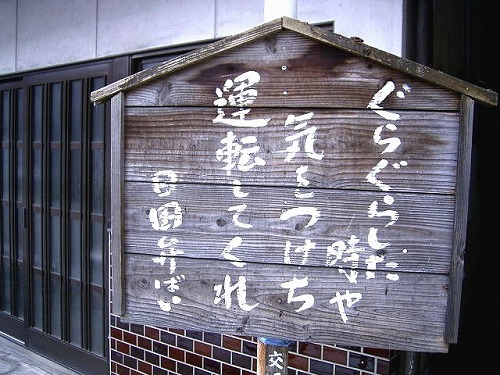 ぐらぐらした
時や
気をつけち
運転してくれ
日田弁ばい
交